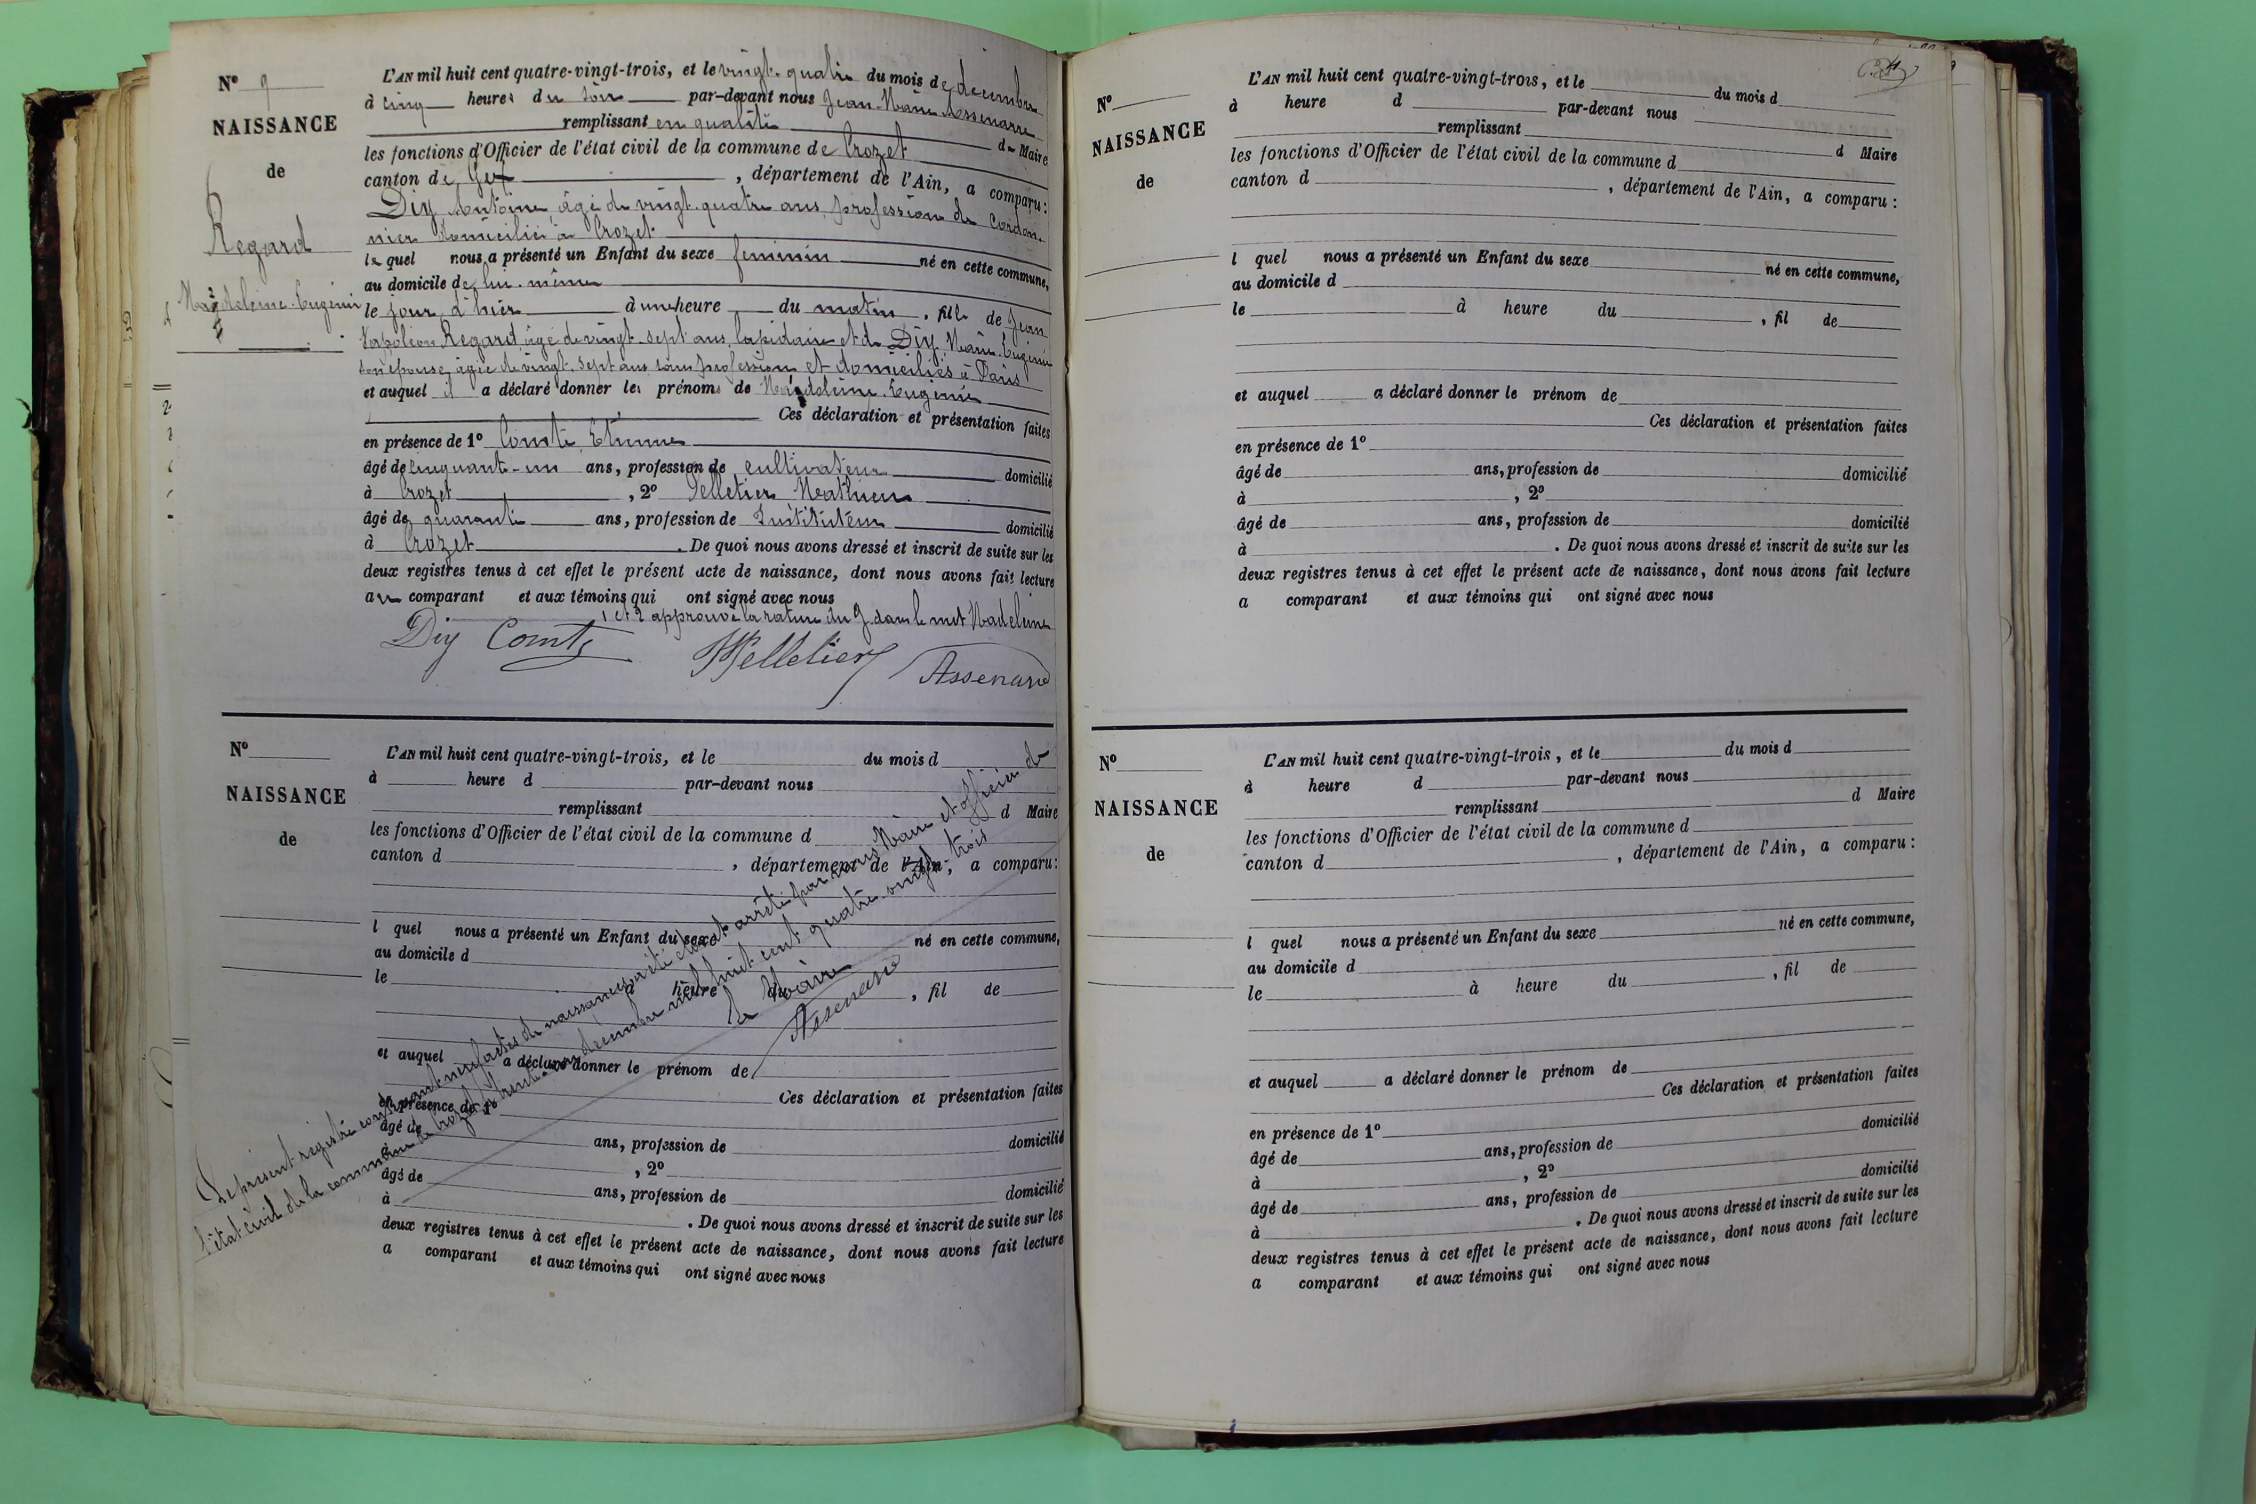 N° 9
NAISSANCE
de
Regard
Madeleine Eugénie
L'AN mil huit cent quatre-vingt-trois, et le vingt-quatre du mois de décembre
à cinq heures du soir par-devant nous Jean Marie Assenare
remplissant en qualité de Maire
les fonctions d'Officier de l'état civil de la commune de Crozet
canton de Gex, département de l'Ain, a comparu:
Diy Antoine âgé de vingt-quatre ans, profession de Cordon-
nier domicilié à Crozet
lequel nous a présenté un Enfant du sexe féminin né en cette commune,
au domicile de lui-même
le jour d'hier à une heure du matin, fille de Jean
Napoléon Regard, âgé de vingt-sept ans, lapidaire et de Diy Marie Eugénie
son épouse, âgée de vingt-sept ans sans profession et domiciliés à Paris
et auquel il a déclaré donner les prénoms de Madeleine Eugénie
Ces déclaration et présentation faites
en présence de 1° Comte Etienne
âgé de cinquante-un ans, profession de cultivateur domicilié
à Crozet, 2° Pelletier Mathieu
âgé de quarante ans, profession de Instituteur domicilié
à Crozet. De quoi nous avons dressé et inscrit de suite sur les
deux registres tenus à cet effet le présent acte de naissance, dont nous avons fait lecture
au comparant et aux témoins qui ont signé avec nous
1 et 2 approuvé la rature du g dans le mot Madeleine
Diy Comte Pelletier Assenare
N°
NAISSANCE
de
L'AN mil huit cent quatre-vingt-trois, et le du mois d
à heure d par-devant nous
remplissant d Maire
les fonctions d'Officier de l'état civil de la commune d
canton d , département de l'Ain, a comparu:
l quel nous a présenté un Enfant du sexe né en cette commune,
au domicile d
le à heure du , fil de
et auquel a déclaré donner le prénom de
Ces déclaration et présentation faites
en présence de 1°
âgé de ans, profession de domicilié
à , 2°
âgé de ans, profession de domicilié
à . De quoi nous avons dressé et inscrit de suite sur les
deux registres tenus à cet effet le présent acte de naissance, dont nous avons fait lecture
a comparant et aux témoins qui ont signé avec nous
Le présent registre contenant neuf actes de naissance a été clos et arrêté par nous Maire et officier de
l'état civil de la commune de Crozet le trente un décembre mil huit cent quatre-vingt-trois
Le Maire
Assenare
N°
NAISSANCE
de
L'AN mil huit cent quatre-vingt-trois, et le du mois d
à heure d par-devant nous
remplissant d Maire
les fonctions d'Officier de l'état civil de la commune d
canton d , département de l'Ain, a comparu:
l quel nous a présenté un Enfant du sexe né en cette commune,
au domicile d
le à heure du , fil de
et auquel a déclaré donner le prénom de
Ces déclaration et présentation faites
en présence de 1°
âgé de ans, profession de domicilié
à , 2°
âgé de ans, profession de domicilié
à . De quoi nous avons dressé et inscrit de suite sur les
deux registres tenus à cet effet le présent acte de naissance, dont nous avons fait lecture
a comparant et aux témoins qui ont signé avec nous
N°
NAISSANCE
de
L'AN mil huit cent quatre-vingt-trois, et le du mois d
à heure d par-devant nous
remplissant d Maire
les fonctions d'Officier de l'état civil de la commune d
canton d , département de l'Ain, a comparu:
l quel nous a présenté un Enfant du sexe né en cette commune,
au domicile d
le à heure du , fil de
et auquel a déclaré donner le prénom de
Ces déclaration et présentation faites
en présence de 1°
âgé de ans, profession de domicilié
à , 2°
âgé de ans, profession de domicilié
à . De quoi nous avons dressé et inscrit de suite sur les
deux registres tenus à cet effet le présent acte de naissance, dont nous avons fait lecture
a comparant et aux témoins qui ont signé avec nous